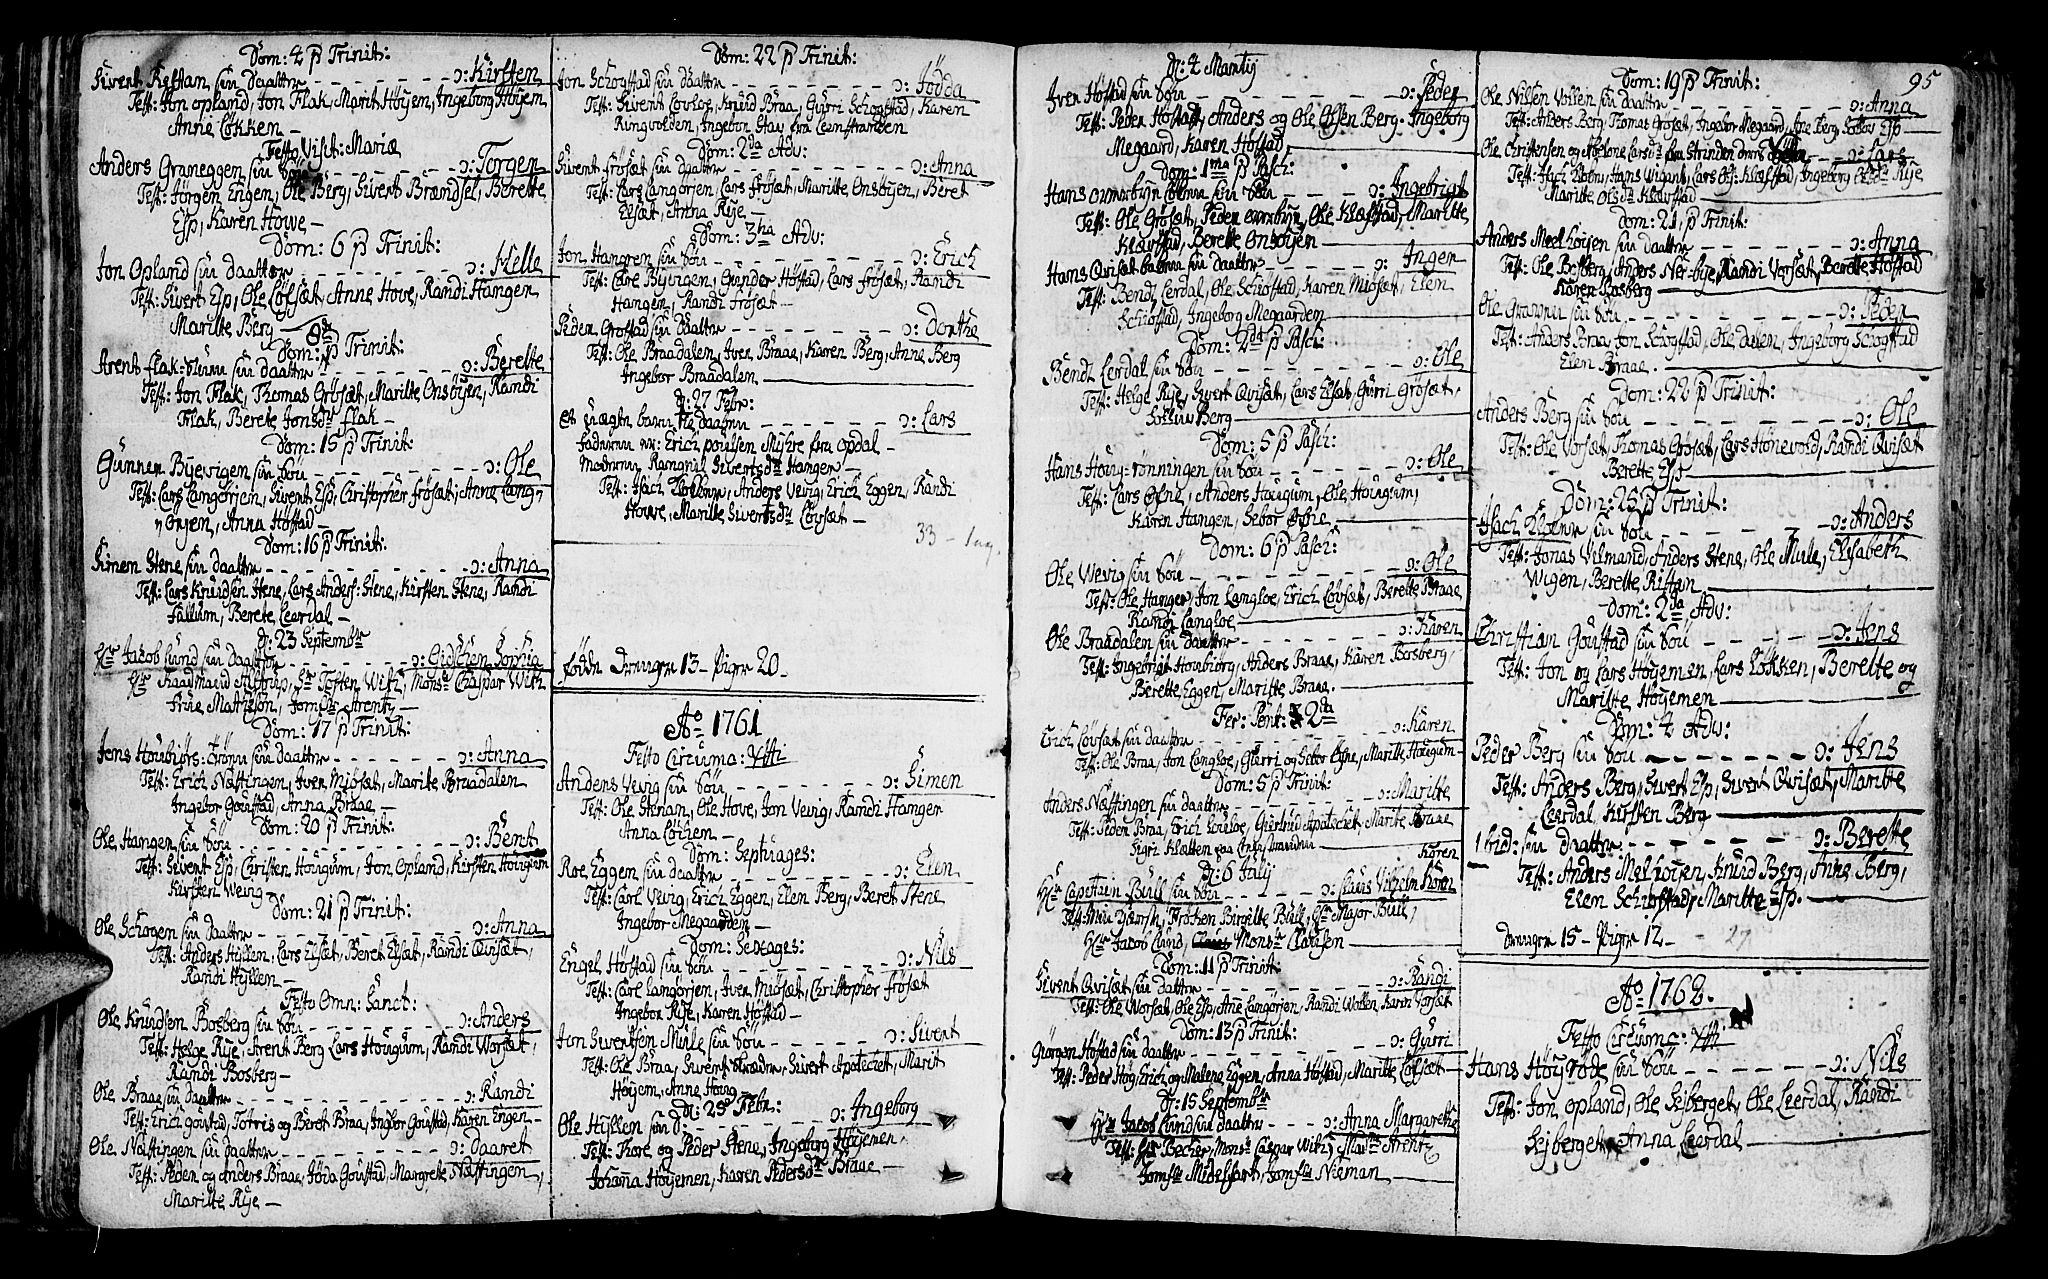 Dom: 4 p Trinit:
Sivert Rettan sin daatter - - - ɔ: Kirsten
Test: Jon opland, Jon Flak, Marit Höyem, Ingeborg Höyem
Anne Lökken -
Festo Visit: Mariæ
Anders Graneggen sin - - - ɔ: Torgen
Test: Jörgen Engen, Ole Berg, Sivert Brændsel, Berette
Esp, Karen Howe -
Dom: 6 p Trinit:
Jon Opland sin daatter - - - ɔ: Melle
Test: Sivert Esp, Ole Löfsæt, Anne Hove, Randi Hangen
Maritte Berg -
Dom: 8de p Trinit:
Arent flak- sin daatter - - - ɔ: Berette
Test: Jon Flak, Thomas Gröset, Maritte Onsöyen, Randi
Flak, Berette Jonsdr flak -
Dom: 15 p Trinit:
Gunner Byevigen sin Sön - - - ɔ: Ole
Test: Lars Langörjen, Sivert Esp, Christopher Frösæt, Anne Lang-
örjen, Anna Höstad -
Dom: 16 p Trinit:
Simen Stene sin daatter - - - ɔ: Anna
Test: Lars Knudsen Stene, Lars Anders: Stene, Kirsten Stene, Randi
Fallum, Berete Leerdal -
d: 23 Septembr
Hr Jacob Lund sin Daatter - - - ɔ: Gidschen Sophia
Hr Raadmand , Hr Tosten With, Monsr Chaspar With
Frue Matheson, Jomfr Arentz -
Dom: 17 p Trinit:
Jens sin daatter - - - ɔ: Anna
Test: Erich Næstingen, Iver Miösæt, Maritte Braadalen
Ingebor Goustad, Anna Braae -
Dom: 20 p Trinit:
Ole Hangen sin Sön - - - ɔ: Bent
Test: Sivert Esp, Christen Hougum, Jon Opland, Kirsten Hougum
Kirsten Weirg
Dom: 21 p Trinit:
Ole Schogen sin daatter - - - ɔ: Anna
Test: Anders Hyllen, Lars Elsæt, Beret Elsæt, Randi Qvisæt,
Randi Hyllen -
Festo Omn: Sanct:
Ole Knudsen Bosberg sin Sön - - - ɔ: Anders
Test: Helge Rye, Arent Berg, Lars Hougum, Randi Worsæt,
Randi Bosberg -
Ole Braae sin daatter - - - ɔ: Randi
Test: Erich goustad, Totris og Beret Braa, Ingbor Goustad, Karen Engen -
Ole Næstingen sin daatter - - - ɔ: Daaret
Test: Peder og anders Braae, Goustad, Margrete Næstingen,
Maritte Rye -
Dom: 22 p Trinit:
Jon Schogstad sin daatter - - - ɔ: Jödda
Test: Sivert Lovloe, Knud Braa, Gurri Schogstad, Karen
Ringvolden, Ingebor Stav fra Leenstranden
Dom: 2da Adv:
Sivert Frösæt sin daatter - - - ɔ: Anna
Test: Lars Langörjen, Lars Frösæt, Maritte Onsöyen, Beret
Elsæt, Anna Rye -
Dom: 3tia Adv:
Jon Hangren sin Sön - - - ɔ: Erich
Test: Carl Byevigen, Gunder Höstad, Lars frösæt, Randi
Hangen, Randi frösæt -
Peder Grostad sin daatter - - - ɔ: Dorthe
Test: Ole Braadalen, Iver Braae, Karen Berg, Anne Berg
Ingebor Braadalen -
d: 27 Febr:
Et uægte barn - - - ɔ: Lars
faderen er: Erich poulsen Myhre fra opdal -
Moderen Rangnil Sivertsdr Hangen -
Test: Isach Anders Vevig, Erich Eggen, Randi
Howe, Maritte Sivertsdr Löfsæt -
33 -
födte drenger 13 - Piger 20 -
Ao 1761
Festo Circumc: Xsti
Anders Vevig sin Sön - - - ɔ: Simen
Test: Ole Stenan, Ole Hove, Jon Vevig, Randi Hanger
Anna Loihem -
Dom: Septuages:
Roe Eggen sin daatter - - - ɔ: Elen
Test: Carl Vevig, Erich Eggen, Elen Berg, Beret Stene
Ingebor Megaarden -
Dom: Sexages:
Engel Höstad sin Sön - - - ɔ: Nils
Test: Carl Langorjen, Iver Miösæt, Christopher frösæt
Ingebor Rye, Karen Höstad -
Jon Sivertsen Mule sin Sön - - - ɔ: Sivert
Test: Ole Braa, Sivert , Sivert Apoteciet, Marit
Höyem, Anne Houg -
d: 25 Febr:
Ole Hyllen sin d: - - - ɔ: Ingeborg
Test: Tore og Peder Stene, Ingeborg Höyemen,
Johanna Höyemen, Karen Pedersdr Braae -
d: 4 Martij
Iver Höstad sin Sön - - - ɔ: Peder
Test: Peder Höstad, Anders og Ole Olsen Berg, Ingeborg
Megaard, Karen Höstad
Dom: 1ma p Pasc:
Hans sin Sön - - - ɔ: Ingebrigt
Test: Ole Grösæt, Peder , Ole Klæfstad, Maritte
Klæfstad, Berette Onsöyen
Hans Qvisæt sin daatter - - - ɔ: Ingen
Test: Bendt Lerdal, Ole Schiöstad, Karen Miösæt, Elen
Schiöstad, Ingeborg Megaarden
Dom: 2da p Pasc:
Bendt Lerdal sin Sön - - - ɔ: Ole
Test: Helge Rye, Sivert Qvisæt, Lars Elsæt, Gurri Grösæt,
Berg
Dom: 5 p Pasc:
Hans Houg-rönningen sin Sön - - - ɔ: Ole
Test: Lars Öfne, Anders Hougum, Ole Hougum,
Karen Hangen, Sebor Öfne,
Dom: 6 p Pasc:
Ole Wevig sin Sön - - - ɔ: Ole
Test: Ole Hanger, Jon Langloe, Erich Löfsæt, Berette Braae
Randi Langloe
Ole Braadalen sin daatter - - - ɔ: Karen
Test: Ingebrigt Houbiörg, Anders Braae, Karen Bosberg,
Berette Eggen, Maritte Braae.
Fer: Pent: 2da
Erich Löfsæt sin daatter - - - ɔ: Karen
Test: Ole Braa, Jon Langloe, Gurri og Sebor Öfne, Maritte Hougum -
Dom: 5 p Trinit:
Anders Næstingen sin daatter - - - ɔ: Maritte
Test: Peder Braa, Erich Loufloe, Giertrud Apoteciet, Marite Braae
Sigri Kletten fra
d: 6 Julij
Hr Captain Bull sin Sön - - - ɔ: Claus Vilhelm Koren
Test: , Fröken Birgitte Bull, Hr Major Bull,
Hr Jacob Lund, Monsr Clausen
Dom: 11 p Trinit:
Sivert Qvisæt sin datter - - - ɔ: Randi
Test: Ole Worsæt, Ole Esp, Ane Langorjen, Randi Wollen, Karen Vorsæt
Dom: 13 p Trinit:
Giörgen Höstad sin daatter - - - ɔ: Gurri
Test: Peder Hög, Erich og Malene Eggen, Anna Höstad, Maritte Löfsæt -
d: 15 Septembr
Hr Jacob Lund sin daatter - - - ɔ: Anna Margarethe
Test: Hr Becher, Monsr Caspar With, Arentz
Jomfr Midelfart, Jomfr Nieman
95
Dom: 19 p Trinit:
Ole Nilsen Vollen sin daatter - - - ɔ: Anna
Test: Anders Berg, Thomas Grösæt, Ingebor Megaard, Ane Berg, Esp -
Ole Christensen og Apelone Larsdr fra Strinden - - - ɔ: Lars
Test: Isach , Hans Wigant, Lars Ols: Klæfstad, Ingeborg Rye
Maritte Olsdr Klæfstad
Dom: 21 p Trinit:
Anders Meelhoien sin daatter - - - ɔ: Anna
Test: Ole Bosberg, Anders Ner-bye, Randi Vorsæt, Berette Höstad
Karen Bosberg
Ole sin Sön - - - ɔ: Peder
Test: Anders Braa, Jon Schogstad, Ole dalen, Ingeborg Schogstad
Elen Braae.
Dom: 22 p Trinit:
Anders Berg sin Sön - - - ɔ: Ole
Test: Ole Vorsæt, Thomas Grösæt, Lars Hönevold, Randi Qvisæt
Berette Esp
Dom: 25 p Trinit:
Isach sin Sön - - - ɔ: Anders
Test: Jonas Vilmand, Anders Stene, Ole Mule, Elisabeth
Wigen, Berette Rittan
Dom: 2da Adv:
Christian Goustad sin Sön - - - ɔ: Jens
Test: Jon og Lars Höyemen, Lars Lökken, Berette og
Maritte Höyemen
Dom: 4 Adv:
Peder Berg sin Sön - - - ɔ: Jens
Test: Anders Berg, Sivert Esp, Sivert Qvisæt, Maritte
Leerdal, Kirsten Berg
Ibid: sin daatter - - - ɔ: Berette
Test: Anders Melhoien, Knud Berg, Anne Berg,
Elen Schiöstad, Maritte Esp.
drenger 15 - Piger 12 - 27
Ao 1762.
Festo Circumc: Xsti
Hans Höyröde sin Sön - - - ɔ: Nils
Test: Jon opland, Ole Lejberget, Ole Leerdal, Randi
Lejberget, Anna Leerdal